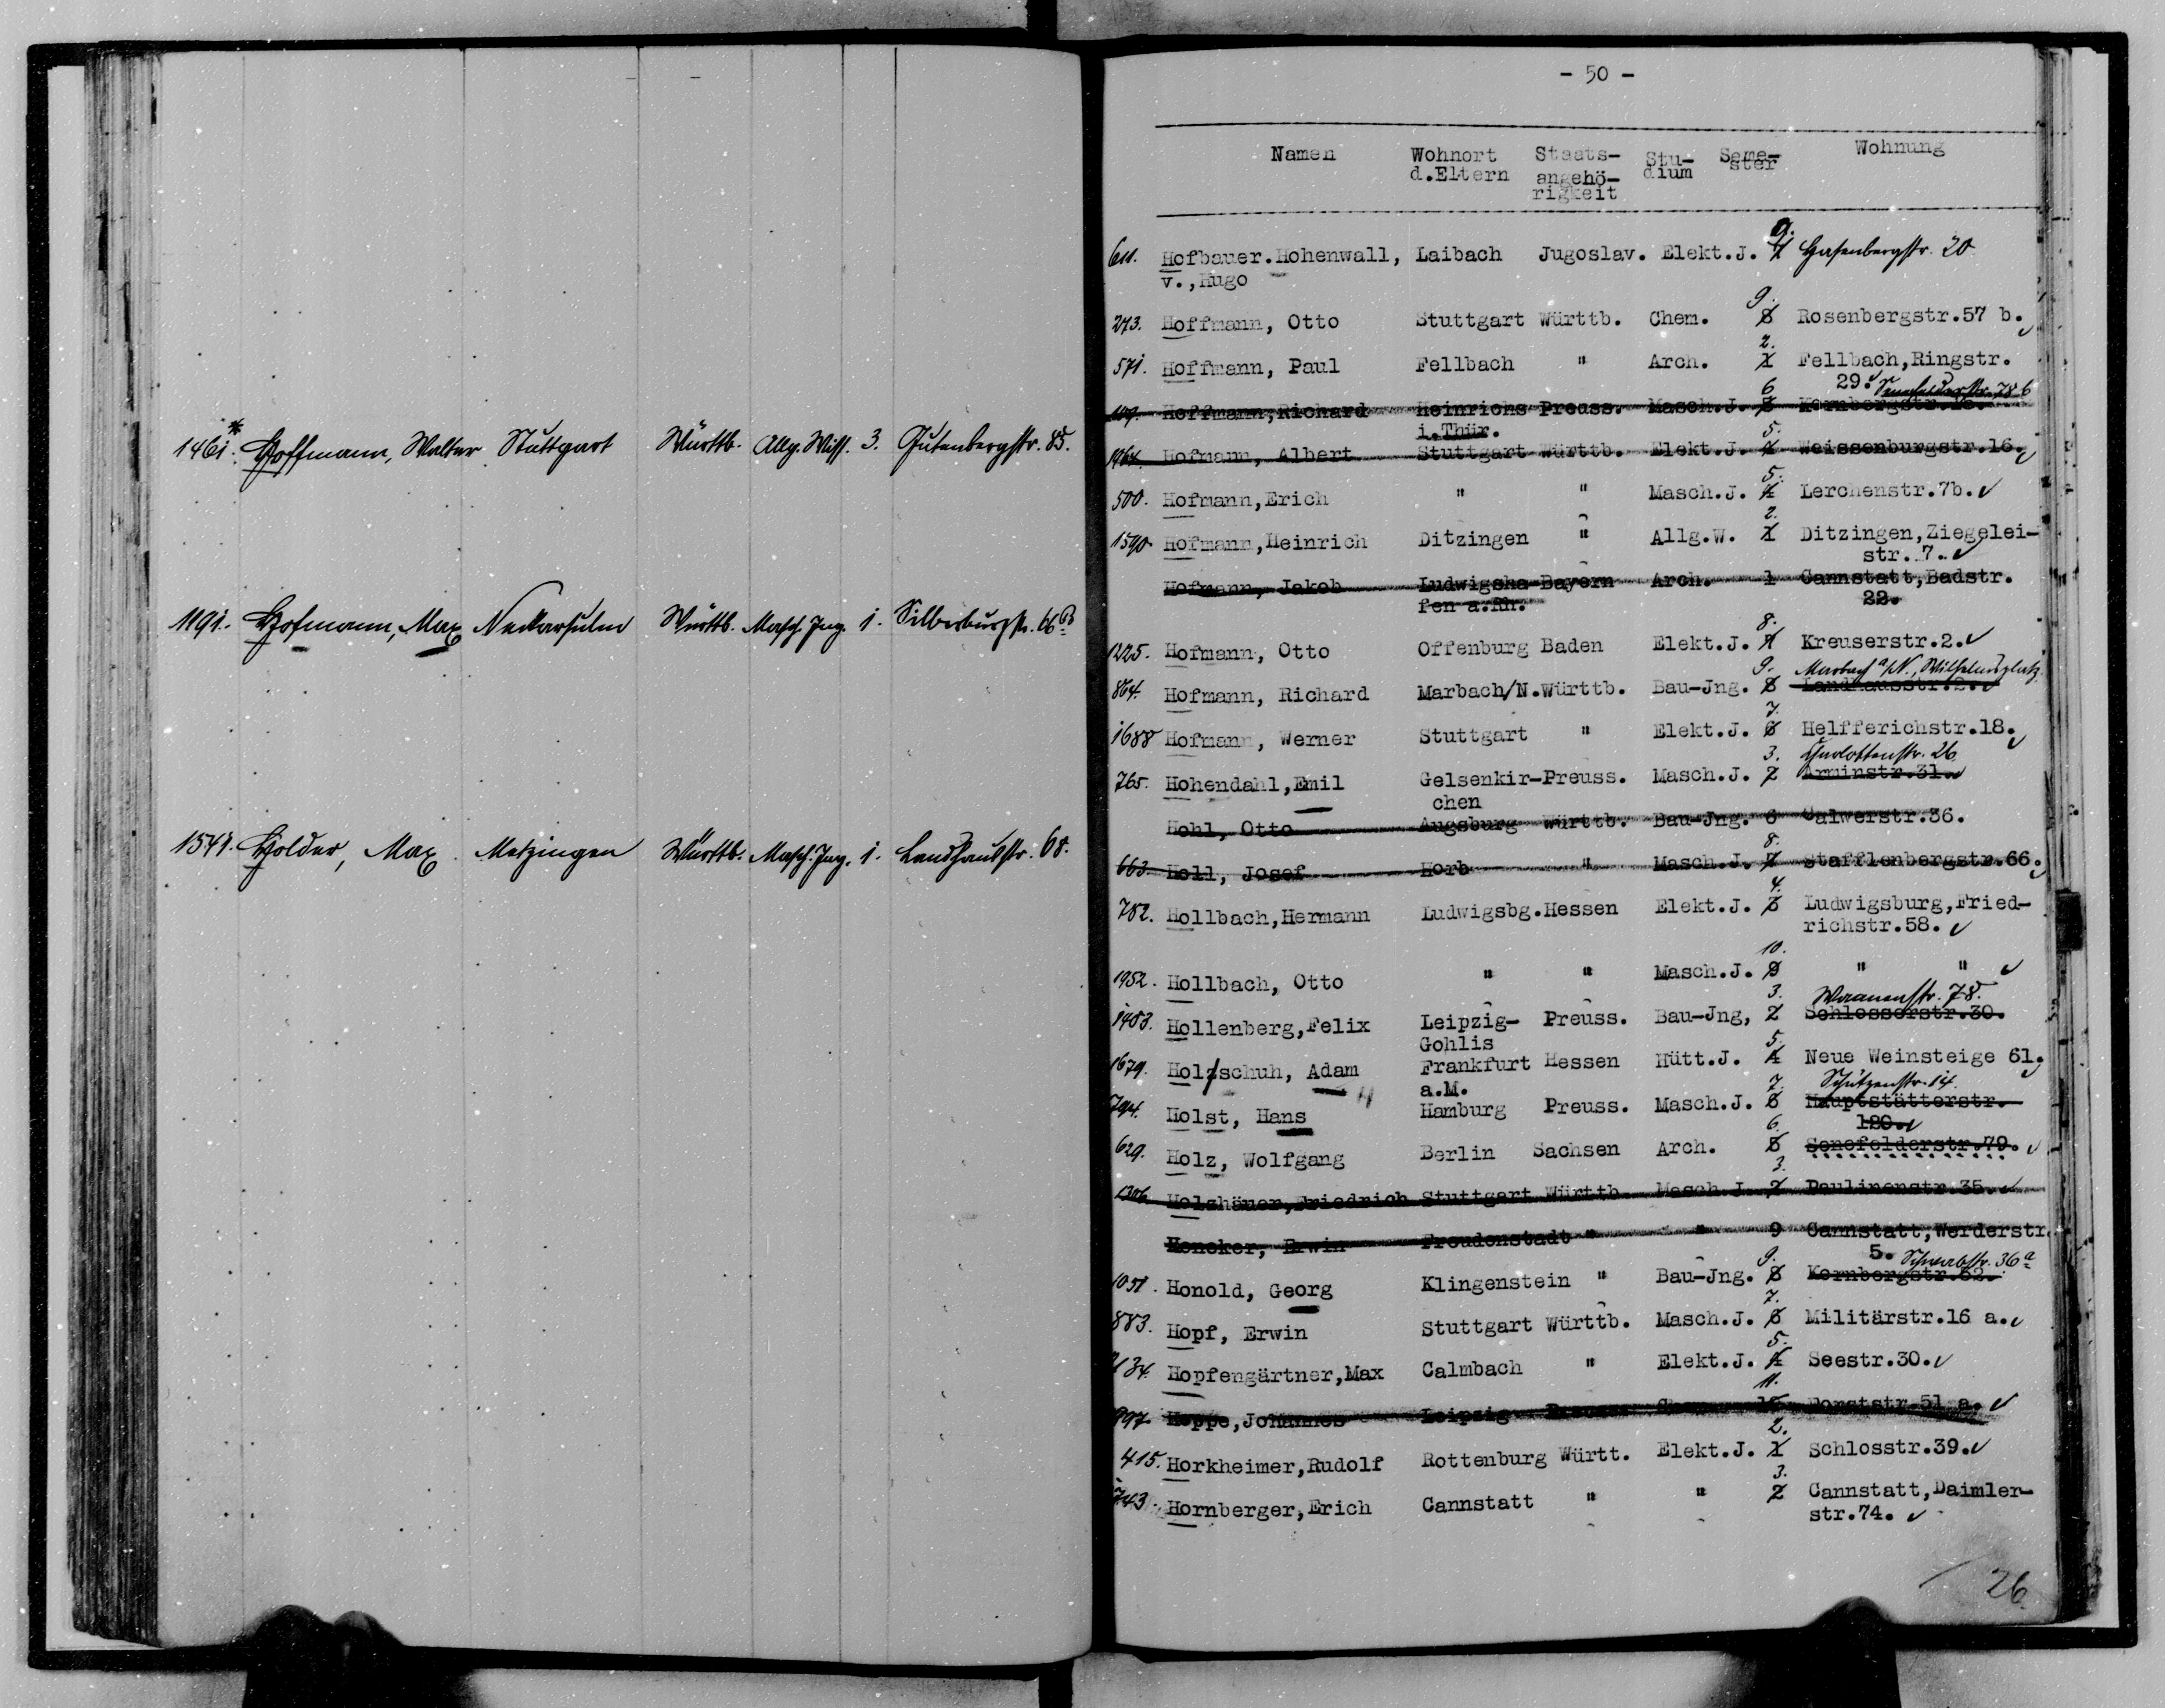 1461. Hoffmann, Walter Stuttgart Württb. Allg. Wiss. 3. Gutenbergstr. 85.
1191. Hofmann, Max Neckarsulm Württb. Masch. Ing. 1. Silberburgstr. 66
1541. Holder, Max Metzingen Württb. Masch. Ing. 1. Landhausstr. 68.
- 50 -
Namen Wohnort Staats- Stu- Seme- Wohnung
d.Eltern angehö- dium ster
rigkeit
9.
611. Hofbauer.Hohenwall, Laibach Jugoslav. Elekt.J. Hasenbergstr. 20
v.,Hugo
9.
273. Hoffmann, Otto Stuttgart Württb. Chem. 8 Rosenbergstr.57 b.
2.
571. Hoffmann, Paul Fellbach " Arch. 1 Fellbach,Ringstr.
6 29. Senefelderstr. 78 b
109. Hoffmann,Richard Heinrichs Preuss. Masch.J. 5 Kernbergstr.18.
i.Thür.
5.
1964. Hofmann, Albert Stuttgart Württb. Elekt.J. 4 Weissenburgstr.16.
5.
500. Hofmann,Erich " " Masch.J. 4 Lerchenstr.7b.
2.
1590. Hofmann,Heinrich Ditzingen " Allg.W. 1 Ditzingen,Ziegelei-
str. 7.
Hofmann, Jakob Ludwigsha-Bayern Arch. 1 Cannstatt,Badstr.
fen a.Rh. 22.
8.
1225. Hofmann, Otto Offenburg Baden Elekt.J. 7 Kreuserstr.2.
9. Marbach a/N., Wilhelmsplatz
864. Hofmann, Richard Marbach/N.Württb. Bau-Jng. 8 Landhausstr.2.
7.
1688 Hofmann, Werner Stuttgart " Elekt.J. 6 Helfferichstr.18.
3. Charlottenstr. 26
765. Hohendahl,Emil Gelsenkir-Preuss. Masch.J. 2 Arminstr.31.
chen
Hohl, Otto Augsburg Württb. Bau-Jng. 6 Calwerstr.36.
8.
663. Holl, Josef Horb " Masch.J. 7 Stafflenbergstr.66.
4.
782. Hollbach,Hermann Ludwigsbg.Hessen Elekt.J. 3 Ludwigsburg,Fried-
richstr.58.
10.
1952. Hollbach, Otto " " Masch.J. 9 " "
3.
1483. Hollenberg,Felix Leipzig- Preuss. Bau-Jng, 2 Schlosserstr.30.
Gohlis
5.
1679. Holzschuh, Adam Frankfurt Hessen Hütt.J. 4 Neue Weinsteige 61.
a.M.
7. Schützenstr. 14.
794. Holst, Hans Hamburg Preuss. Masch.J. 6 Hauptstätterstr.
6. 120.
629. Holz, Wolfgang Berlin Sachsen Arch. 5 Senefelderstr.79.
3.
1306. Holzhäuer,Friedrich Stuttgart Württb. Masch.J. 2 Paulinenstr.35.
Honeker, Erwin Freudenstadt " " 9 Cannstatt,Werderstr.
5.
9. Schwabstr. 36 a
1051. Honold, Georg Klingenstein " Bau-Jng. 8 Kernbergstr.62.
7.
883. Hopf, Erwin Stuttgart Württb. Masch.J. 6 Militärstr.16 a.
5.
Hopfengärtner,Max Calmbach " Elekt.J. 4 Seestr.30.
11.
997. Hoppe,Johannes Leipzig Preuss. Chem. 10 Forststr.51 a.
2.
415. Horkheimer,Rudolf Rottenburg Württ. Elekt.J. 1 Schlosstr.39.
3.
743. Hornberger,Erich Cannstatt " " 2 Cannstatt,Daimler-
str.74.
26